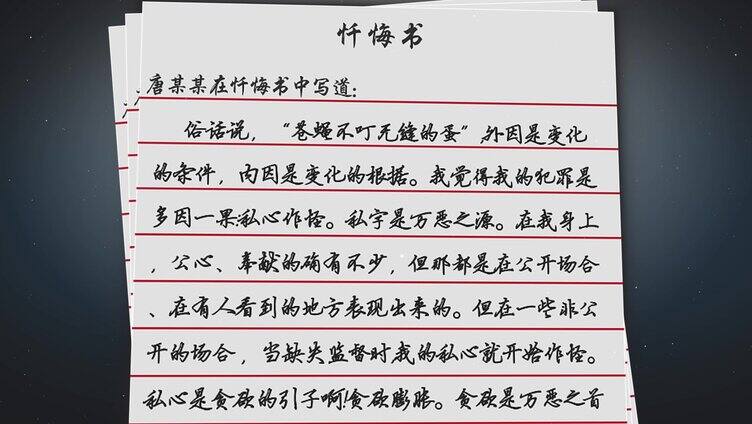 忏悔书
唐某某在忏悔书中写道：
俗话说，“苍蝇不叮无缝的蛋”，外因是变化
的条件，内因是变化的根据。我觉得我的犯罪是
多因一果：私心作怪。私字是万恶之源。在我身上
，公心、奉献的确有不少，但那都是在公开场合
、在有人看到的地方表现出来的。但在一些非公
开的场合，当缺失监督时我的私心就开始作怪。
私心是贪欲的引子啊！贪欲膨胀。贪欲是万恶之首